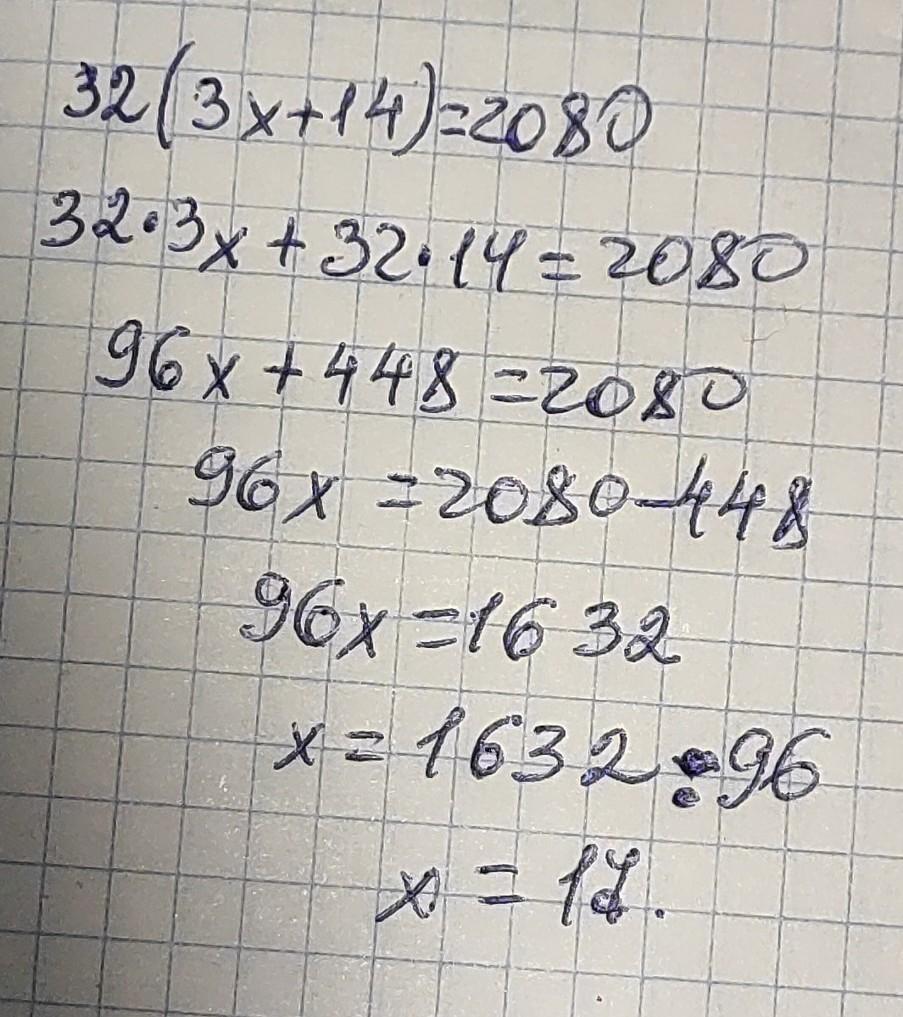 32(3x+14)=2080
32·3x+32·14=2080
96x+448=2080
96x=2080-448
96x=1632
x=1632:96
x=17.